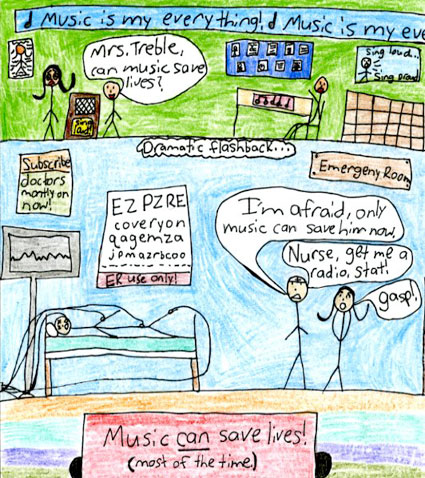 Music is my everything! Music is my eve
Mrs. Treble,
can music save
lives?
Sing loud..
Sing Proud
sing
loud!
Dramatic flashback...
Subscribe
doctors
montly on
now!
Emergeny Room
EZPZRE
coveryon
qagemza
jpmazrbcoo
ER use only!
I'm afraid, only
music can save him now.
Nurse, get me a
radio, stat!
gasp!
Music can save lives!
(most of the time.)